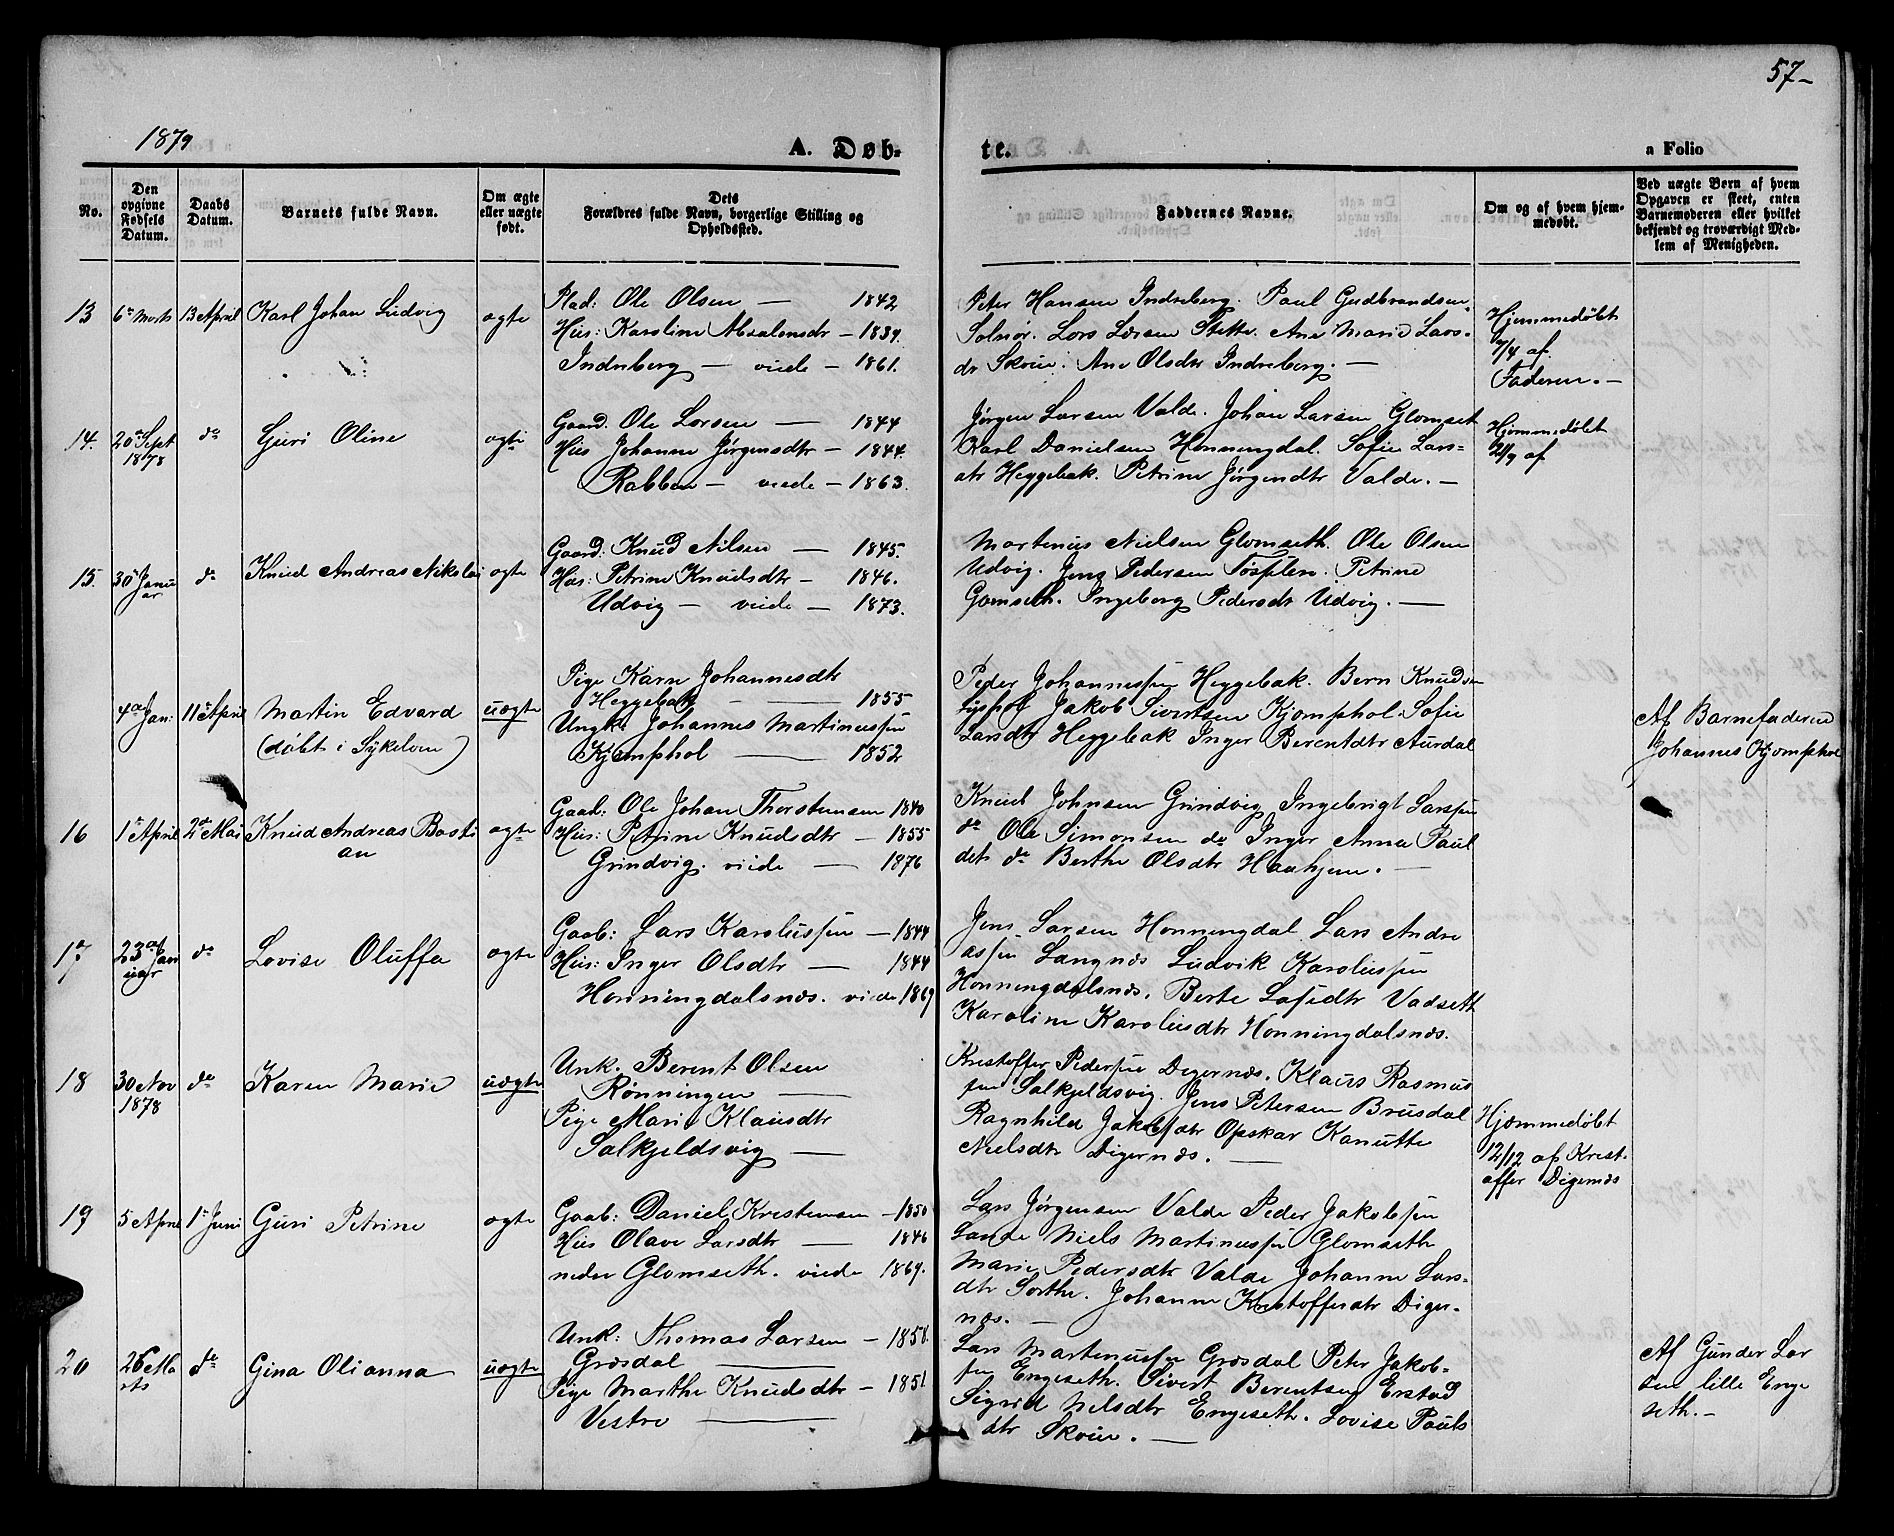 57-
1879
A. Døb-
te.
a Folio
No.
Den
opgivne
Fødsels
Datum.
Daabs
Datum.
Barnets fulde Navn.
Om ægte
eller uægte
født.
Dets
Forældres fulde Navn, borgerlige Stilling og
Opholdssted.
Faddernes Navne.
Om og af hvem hjem-
medøbt.
Ved uægte Børn af hvem
Opgaven er skeet, enten
Barnemoderen eller hvilket
bekjendt og troværdigt Med-
lem af Menigheden.
13
6te Marts
13 April
Karl Johan Ludvig
ægte
Plad: Ole Olsen — 1842
Hus: Karoline Absalonsdtr — 1839.
Indreberg — viede — 1861.
Peter Hansen Indreberg. Paul Gudbrandsen
Solnør. Lars Larsen Stette. Ane Marie Lars-
dr Skoue. Ane Olsdtr Indreberg. —
Hjemmedøbt
7/4 af
Faderen. —
14.
20de Sept
1878
do
Guri Oline
ægte
Gaard. Ole Larsen — 1844
Hus Johanne Jørgensdtr — 1844.
Rabben — viede — 1863.
Jørgen Larsen Valde. Johan Larsen Glomset
Karl Danielsen Honningdal. Sofie Lars-
dtr Heggebak. Petrine Jørgensdtr Valde. —
Hjemmedøbt
af
15.
30 Janu
ar
do
Knud Andreas Nikolai
ægte
Gaard: Knud Nilsen — 1845.
Hus: Petrine Knudsdtr — 1846.
Udvig — viede — 1873.
Martinus Nielsen Glomseth. Ole Olsen
Udvig. Jens Pedersen Petrine
Ingeberg Pedersdtr Udvig. —
4de Jan:
11te April
Martin Edvard
(døbt i Sykelven)
uægte
Pige Karn Johannesdtr
Heggebak — 1855
Ungk: Johannes Martinussen
Kjemphol — 1852
Peder Johannessen Heggebak. Bern Knudsen
Jakob Sivertsen Kjomphol. Sofie
Larsdtr Heggebak Inger Berentdtr Aurdal
Af Barnefaderen
Johannes Kjomphol
16
1te April
2de Mai
Knud Andreas Basti
an
ægte
Gaab: Ole Johan Thorstensen 1840
Hus: Petrine Knudsdtr — 1855
Grindvig. viede — 1876
Knud Johnsen Grindvig Ingebrigt Larssen
do Ole Simonsen do Inger Anna Paul
dtr do Berthe Olsdtr Haahjem. —
17
23de Jan
uar
do
Lovise Oluffa
ægte
Gaab: Lars Karolussen — 1844
Hus: Inger Olsdtr — 1844
Honningdalsnæs. viede 1869
Jens Larsen Honningdal Lars Andre
assen Langnæs Ludvik Karolussen
Honningdalsnæs. Berte Lasedtr Vadseth
Karoline Karolusdtr Honningdalsnæs.
18
30 Nov
1878
do
Karen Marie
uægte
Unk. Berent Olsen
Rønningen —
Pige Mari Klausdtr
Salkjeldsvig —
Kristoffer Pedersen Digernæs. Klaus Rasmus
sen Salkjeldsvig. Jens Petersen Brusdal
Ragnhild Jakobsdtr Opskar Kanutte
Nielsdtr Digernæs. —
Hjæmmedøbt
12/12 af Krist-
offer Digernæs
19
5 April
1te Juni
Guri Petrine
ægte
Gaab: Daniel Kristensen — 1850
Hus Olave Larsdtr — 1846
nedre Glomseth. viede 1869.
Lars Jørgensen Valde Peder Jakobsen
Lande Niels Martinussen Glomseth
Marie Pedersdtr Valde Johanne Lars-
dtr Johanne Kristoffersdtr Diger-
næs. —
20
26 Ma
rts
do
Gina Olianna
uægte
Unk: Thomas Larsen — 1858.
Græsdal —
Pige Marthe Knudsdtr — 1851
Vestre —
Lars Martinussen Græsdal Peter Jakob-
sen Engeseth. Sivert Berentsen Erstad
Sigrid Nelsdtr Engeseth. Lovise Pauls
dtr Skoue. —
Af Gunder Lar
sen lille Enge
seth. —